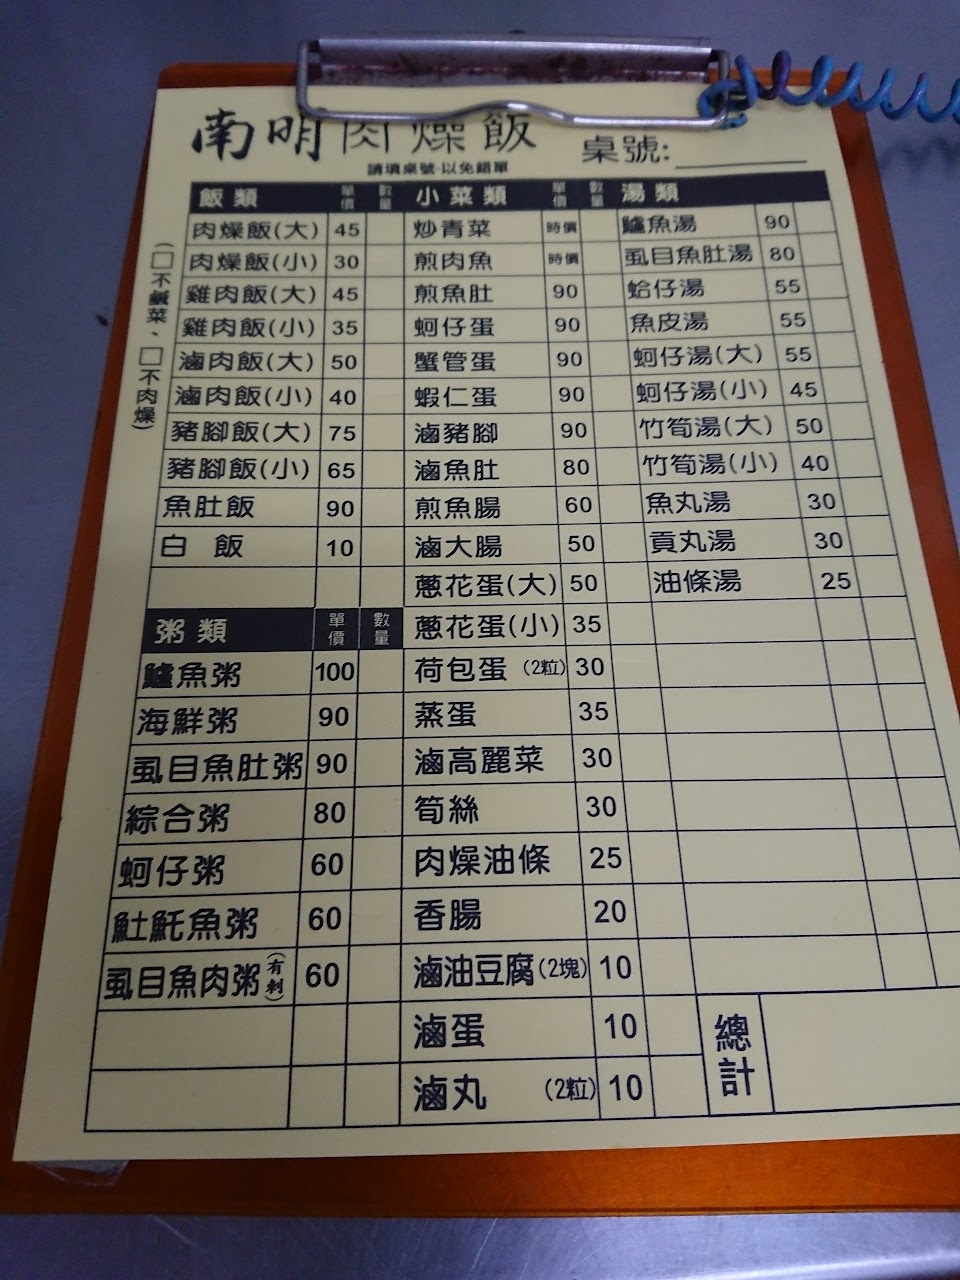 南明肉燥飯
桌號:
請填桌號·以免錯單
飯類 單價 數量
肉燥飯(大) 45
肉燥飯(小) 30
雞肉飯(大) 45
雞肉飯(小) 35
滷肉飯(大) 50
滷肉飯(小) 40
豬腳飯(大) 75
豬腳飯(小) 65
魚肚飯 90
白飯 10
(□不鹹菜、□不肉燥)
粥類 單價 數量
鱸魚粥 100
海鮮粥 90
虱目魚肚粥 90
綜合粥 80
蚵仔粥 60
魠魠魚粥 60
虱目魚肉粥(有刺) 60
小菜類 單價 數量
炒青菜 時價
煎肉魚 時價
煎魚肚 90
蚵仔蛋 90
蟹管蛋 90
蝦仁蛋 90
滷豬腳 90
滷魚肚 80
煎魚腸 60
滷大腸 50
蔥花蛋(大) 50
蔥花蛋(小) 35
荷包蛋(2粒) 30
蒸蛋 35
滷高麗菜 30
筍絲 30
肉燥油條 25
香腸 20
滷油豆腐(2塊) 10
滷蛋 10
滷丸(2粒) 10
湯類
鱸魚湯 90
虱目魚肚湯 80
蛤仔湯 55
魚皮湯 55
蚵仔湯(大) 55
蚵仔湯(小) 45
竹筍湯(大) 50
竹筍湯(小) 40
魚丸湯 30
貢丸湯 30
油條湯 25
總計